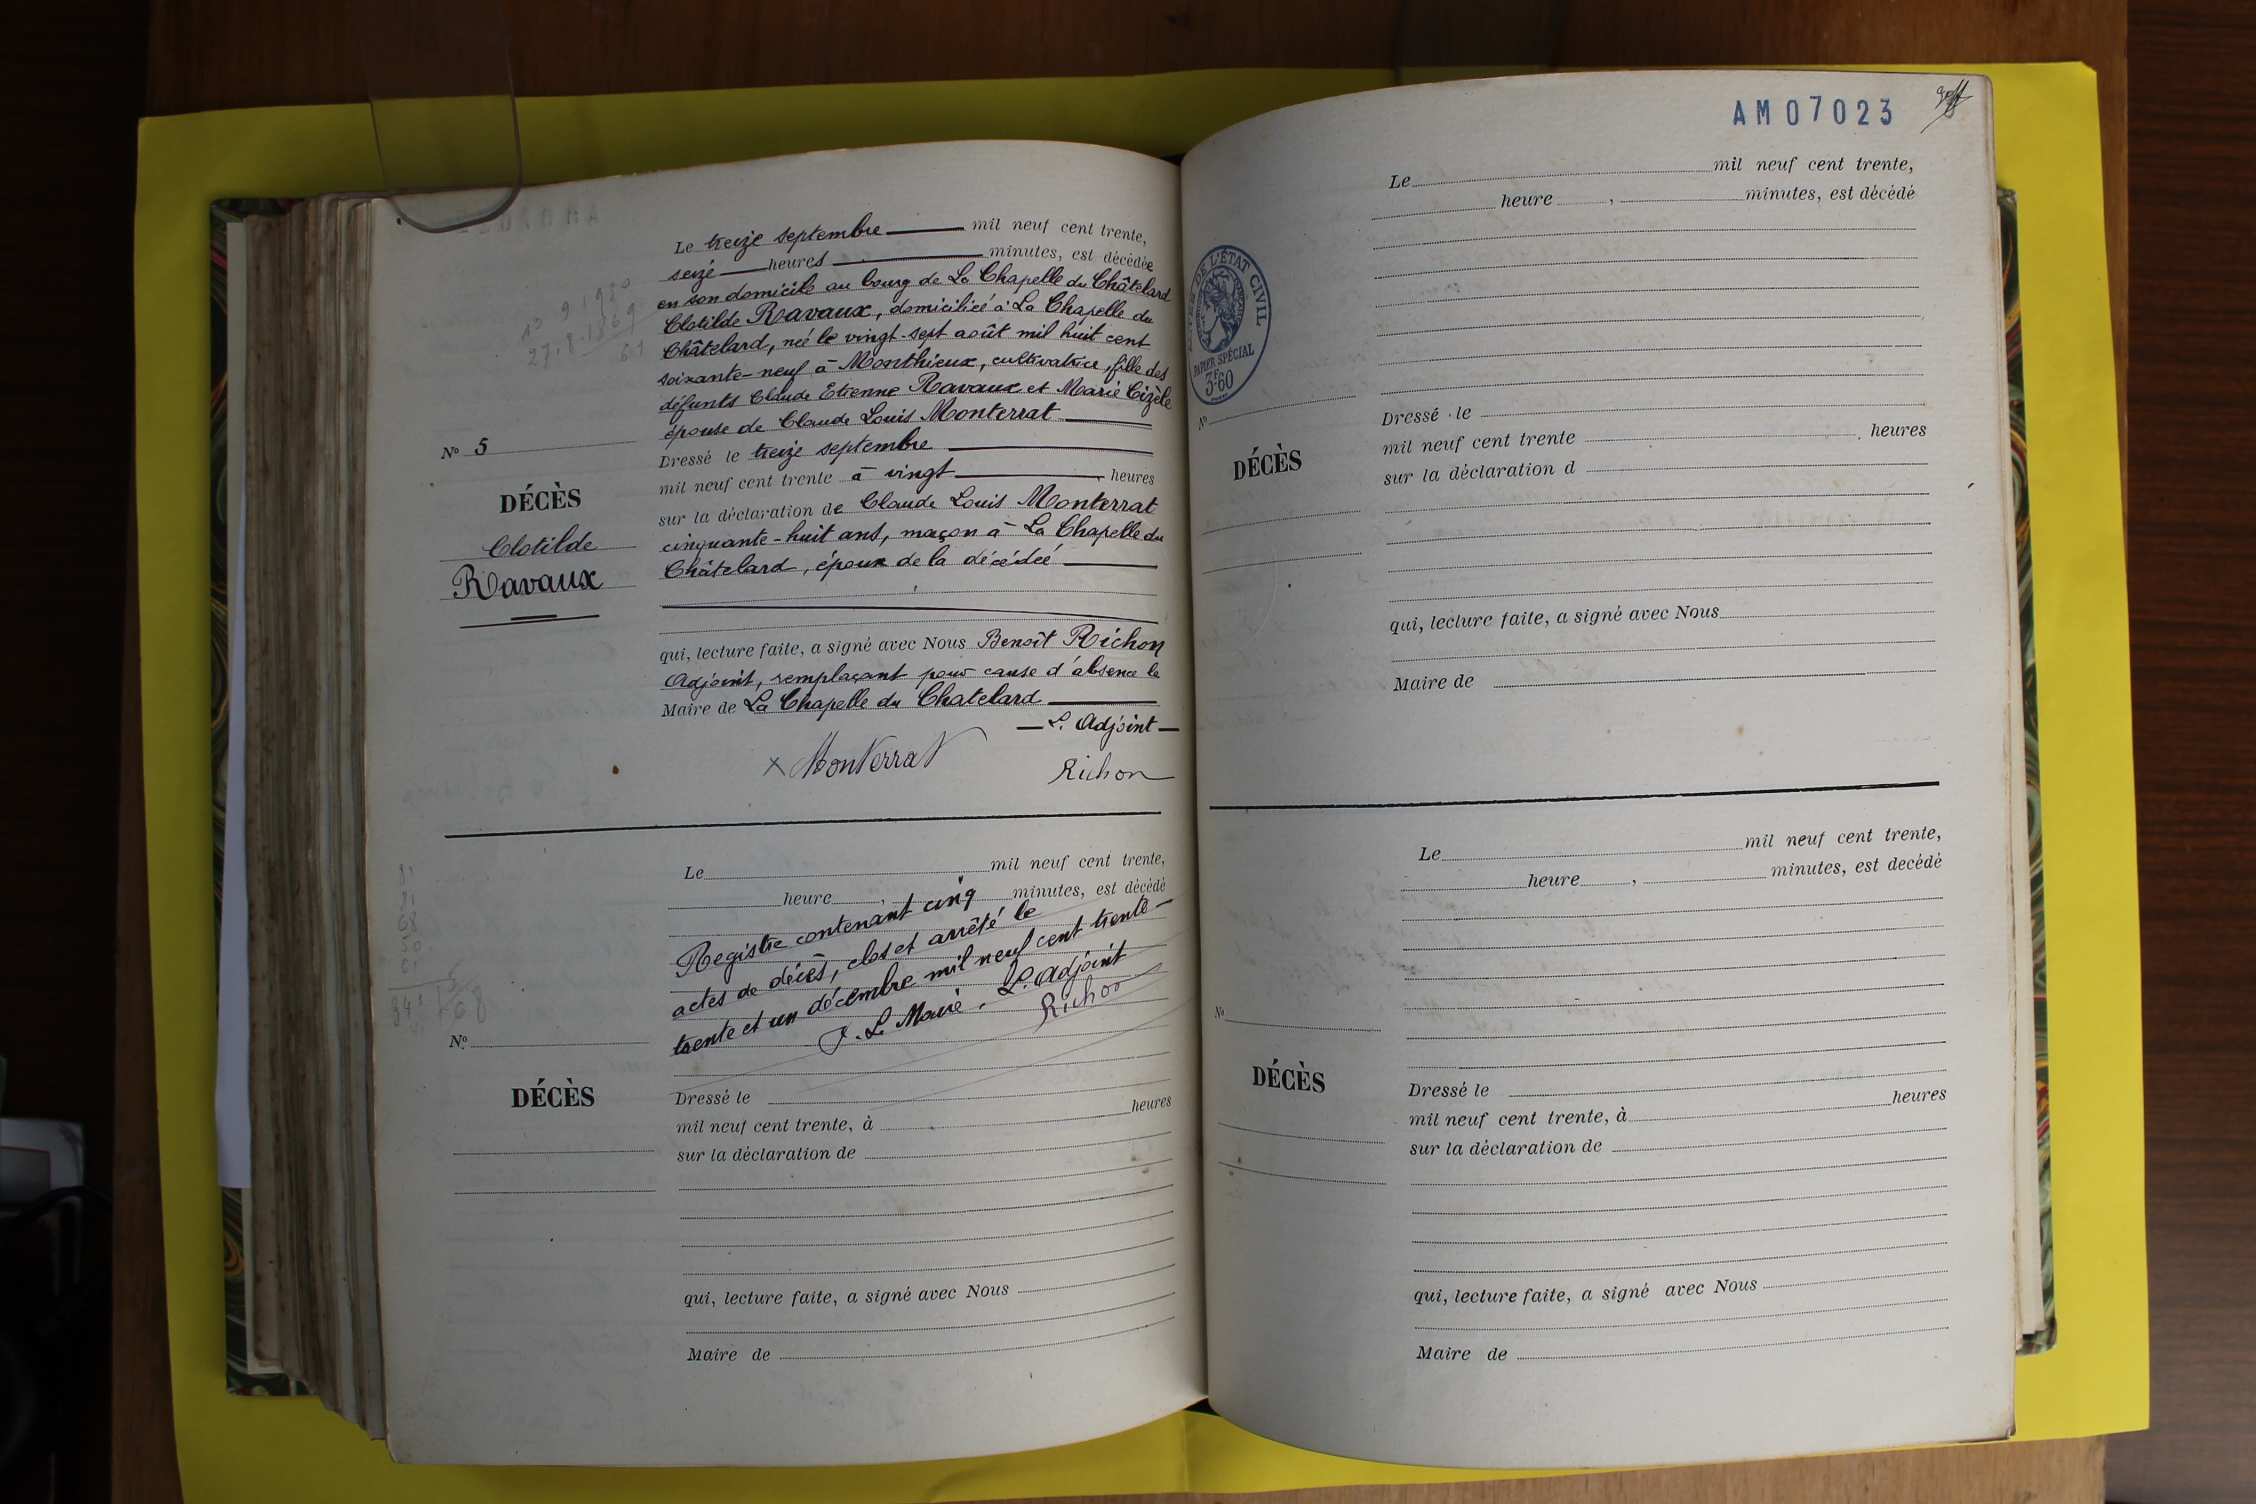 Le treize septembre mil neuf cent trente,
seize heures minutes, est décédée
en son domicile au bourg de La Chapelle du Châtelard
Clotilde Ravaux, domiciliée à La Chapelle du
Châtelard, née le vingt-sept août mil huit cent
soixante-neuf à Monthieux, cultivatrice, fille des
défunts Claude Etienne Ravaux et Marie Cizèle
épouse de Claude Louis Monterrat
Dressé le treize septembre
mil neuf cent trente à vingt heures
sur la déclaration de Claude Louis Monterrat
cinquante-huit ans, maçon à La Chapelle du
Châtelard, époux de la décédée
qui, lecture faite, a signé avec Nous Benoît Richon
Adjoint, remplaçant pour cause d'absence le
Maire de La Chapelle du Chatelard
L. Adjoint
Monterrat
Richon
13 9 1930
27.8.1869
61
No 5
DÉCÈS
Clotilde
Ravaux
Le mil neuf cent trente,
heure , minutes, est décédé
Registre contenant cinq
actes de décès, clos et arrêté le
trente et un décembre mil neuf cent trente
P. Le Maire. L. Adjoint
Richon
68
No
DÉCÈS
Dressé le
mil neuf cent trente, à heures
sur la déclaration de
qui, lecture faite, a signé avec Nous
Maire de
AM07023
Le mil neuf cent trente,
heure , minutes, est décédé
DE L'ÉTAT CIVIL
PAPIER SPÉCIAL
3F60
No
DÉCÈS
Dressé le
mil neuf cent trente heures
sur la déclaration d
qui, lecture faite, a signé avec Nous
Maire de
Le mil neuf cent trente,
heure , minutes, est decédé
No
DÉCÈS
Dressé le
mil neuf cent trente, à heures
sur la déclaration de
qui, lecture faite, a signé avec Nous
Maire de